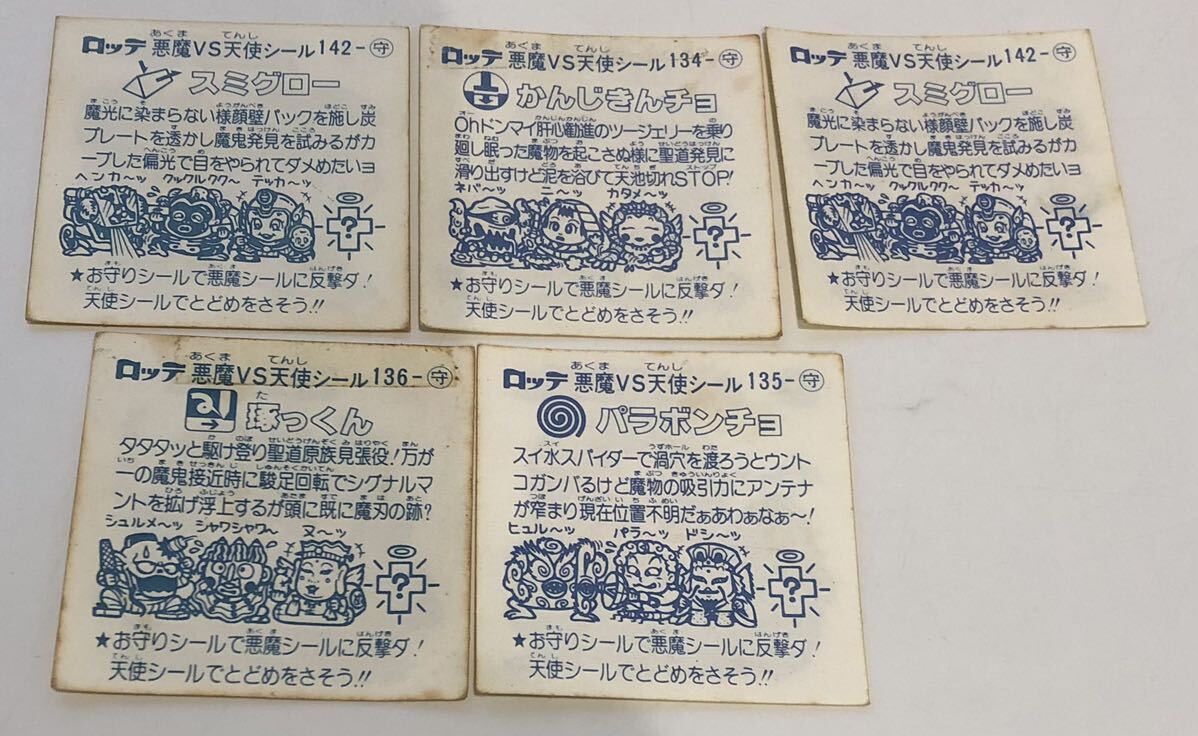 ロッテ 悪魔VS天使シール 142-守
スミグロー
魔光に染まらない様顔壁パックを施し炭
プレートを透かし魔鬼発見を試みるがカ
ーブした偏光で目をやられてダメめたいヨ
ヘンカ〜ッ クックルクク〜 テッカ〜ッ
?
★お守りシールで悪魔シールに反撃ダ!
天使シールでとどめをさそう!!
ロッテ 悪魔VS天使シール 134-守
かんじきんチョ
Ohドンマイ肝心勧進のツージェリーを乗り
廻し眠った魔物を起こさぬ様に聖道発見に
滑り出すけど泥を浴びて天池切れSTOP!
ネバ〜ッ ニ〜ッ カタメ〜ッ
?
★お守りシールで悪魔シールに反撃ダ!
天使シールでとどめをさそう!!
ロッテ 悪魔VS天使シール 142-守
スミグロー
魔光に染まらない様顔壁パックを施し炭
プレートを透かし魔鬼発見を試みるがカ
ーブした偏光で目をやられてダメめたいヨ
ヘンカ〜ッ クックルクク〜 テッカ〜ッ
?
★お守りシールで悪魔シールに反撃ダ!
天使シールでとどめをさそう!!
ロッテ 悪魔VS天使シール 136-守
琢っくん
タタタッと駆け登り聖道原族見張役!万が
一の魔鬼接近時に駿足回転でシグナルマ
ントを拡げ浮上するが頭に既に魔刃の跡?
シュルメ〜ッ シャワシャワ〜 ヌ〜ッ
?
★お守りシールで悪魔シールに反撃ダ!
天使シールでとどめをさそう!!
ロッテ 悪魔VS天使シール 135-守
パラボンチョ
スイ水スパイダーで渦穴を渡ろうとウント
コガンバるけど魔物の吸引力にアンテナ
が窄まり現在位置不明だぁあわぁなぁ〜!
ヒュル〜ッ パラ〜ッ ドシ〜ッ
?
★お守りシールで悪魔シールに反撃ダ!
天使シールでとどめをさそう!!